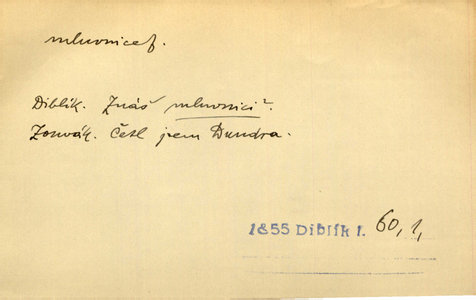 mluvnice f.
Diblík. Znáš mluvnici?
Zouvák. Četl jsem Dundra.
1855 Diblík 1. 60, 1,